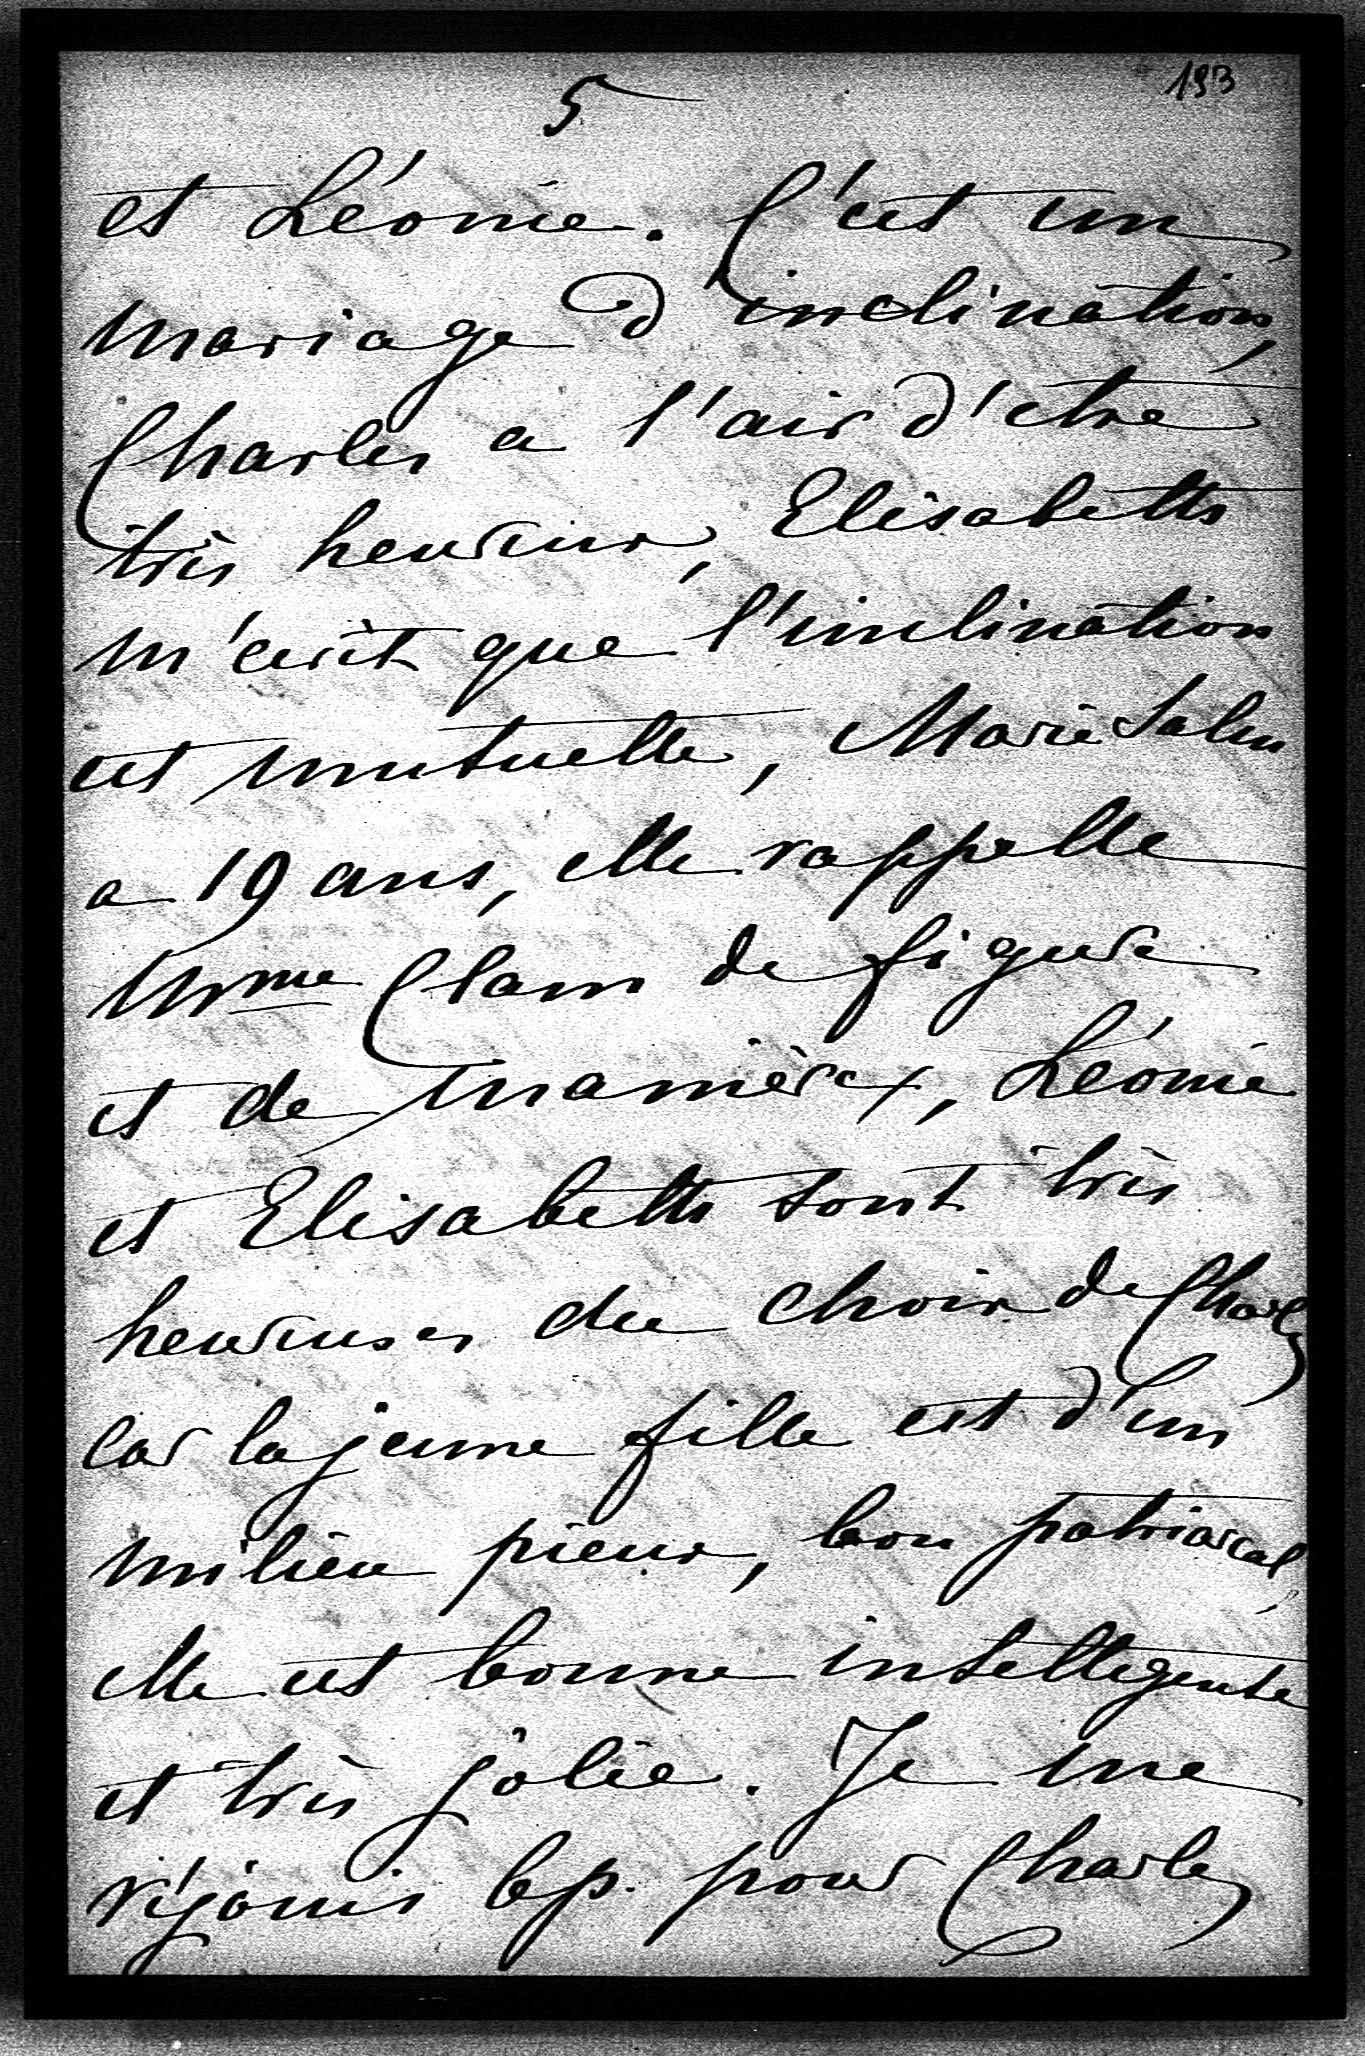 5
193
et Léonie. C'est un
mariage d'inclination,
Charles a l'air d'être
très heureux, Elisabeth
m'écrit que l'inclination
est mutuelle, Marie
a 19 ans, elle rappelle
Mme de figure
et de manières, Léonie
et Elisabeth sont très
heureuses du choix de Charles
car la jeune fille est d'un
milieu pieux, bon patriarcal,
elle est bonne intelligente
et très jolie. Je me
réjouis bp. pour Charles